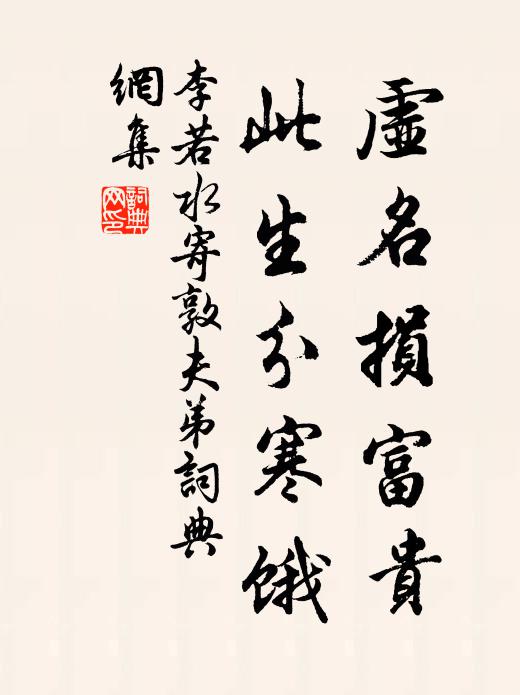 虛名損富貴
此生分寒餓
李若水寄敦夫弟詞典
網集
詞典
网印